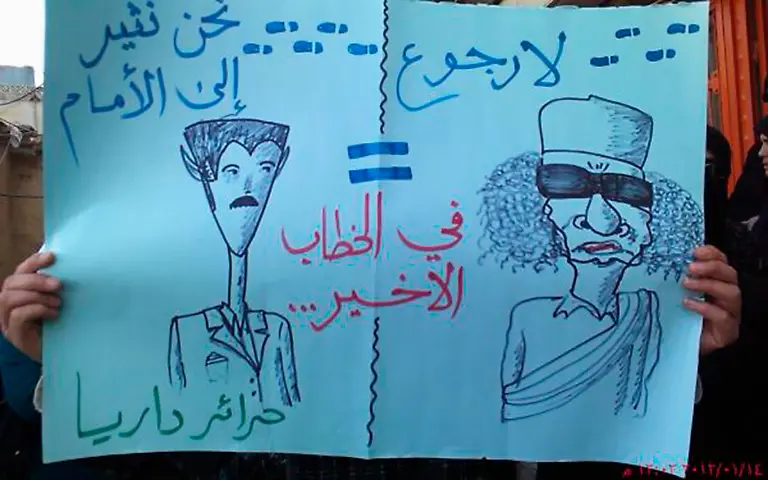 لا رجوع
نحن نثير
إلى الأمام
=
في الخطاب
الاخير...
حرائر داريا
٢٠١٢/٠١/١٤ ١٢:٠٢